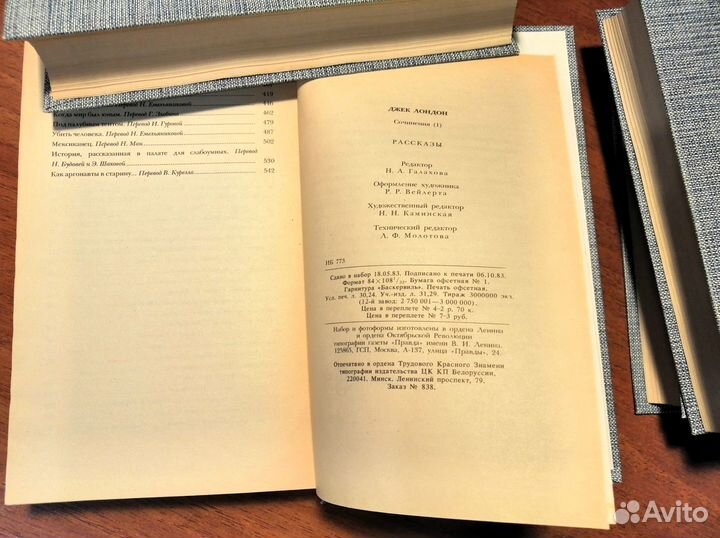 419
Перевод Н. Емельянниковой 446
Когда мир был юным. Перевод Г. Злобина 462
Под палубным тентом. Перевод И. Гуровой 479
Убить человека. Перевод Н. Емельянниковой 487
Мексиканец. Перевод Н. Ман 502
История, рассказанная в палате для слабоумных. Перевод
Н. Будавей и Э. Шаховой 530
Как аргонавты в старину... Перевод В. Курелла 542
ДЖЕК ЛОНДОН
Сочинения (1)
РАССКАЗЫ
Редактор
Н. А. Галахова
Оформление художника
Р. Р. Вейлерта
Художественный редактор
Н. Н. Каминская
Технический редактор
А. Ф. Молотова
ИБ 773
Сдано в набор 18.05.83. Подписано к печати 06.10.83.
Формат 84×108¹/₃₂. Бумага офсетная № 1.
Гарнитура «Баскервиль». Печать офсетная.
Усл. печ. л. 30,24. Уч.-изд. л. 31,29. Тираж 3000000 экз.
(12-й завод: 2 750 001—3 000 000).
Цена в переплете № 4–2 р. 70 к.
Цена в переплете № 7–3 руб.
Набор и фотоформы изготовлены в ордена Ленина
и ордена Октябрьской Революции
типографии газеты «Правда» имени В. И. Ленина.
125865, ГСП, Москва, А-137, улица «Правды», 24.
Отпечатано в ордена Трудового Красного Знамени
типографии издательства ЦК КП Белоруссии,
220041. Минск, Ленинский проспект, 79.
Заказ № 838.
Avito